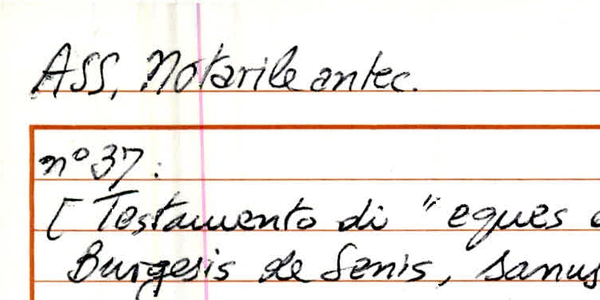 ASS, Notarile antec.
n° 37:
[ Testamento di " eques
Burgesis de Senis, sanus